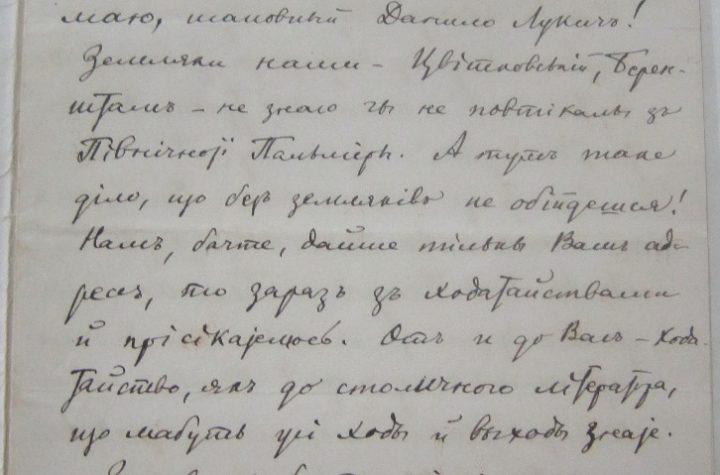 маю, шановный Данило Лукичъ!
Земляки наши – Цвітковській, Берен-
штамъ – не знаю чы не повтікалы зъ
Північної Пальміры. А тутъ таке
діло, що безъ земляківъ не обійдешся!
Намъ, бачте, дайте тількы Вашъ ад-
ресъ, то заразъ зъ ходатайствамы
й прісікаємось. Отъ и до Васъ – хода-
тайство, якъ до столичного літератора,
що мабуть усі ходы й выходы знає.